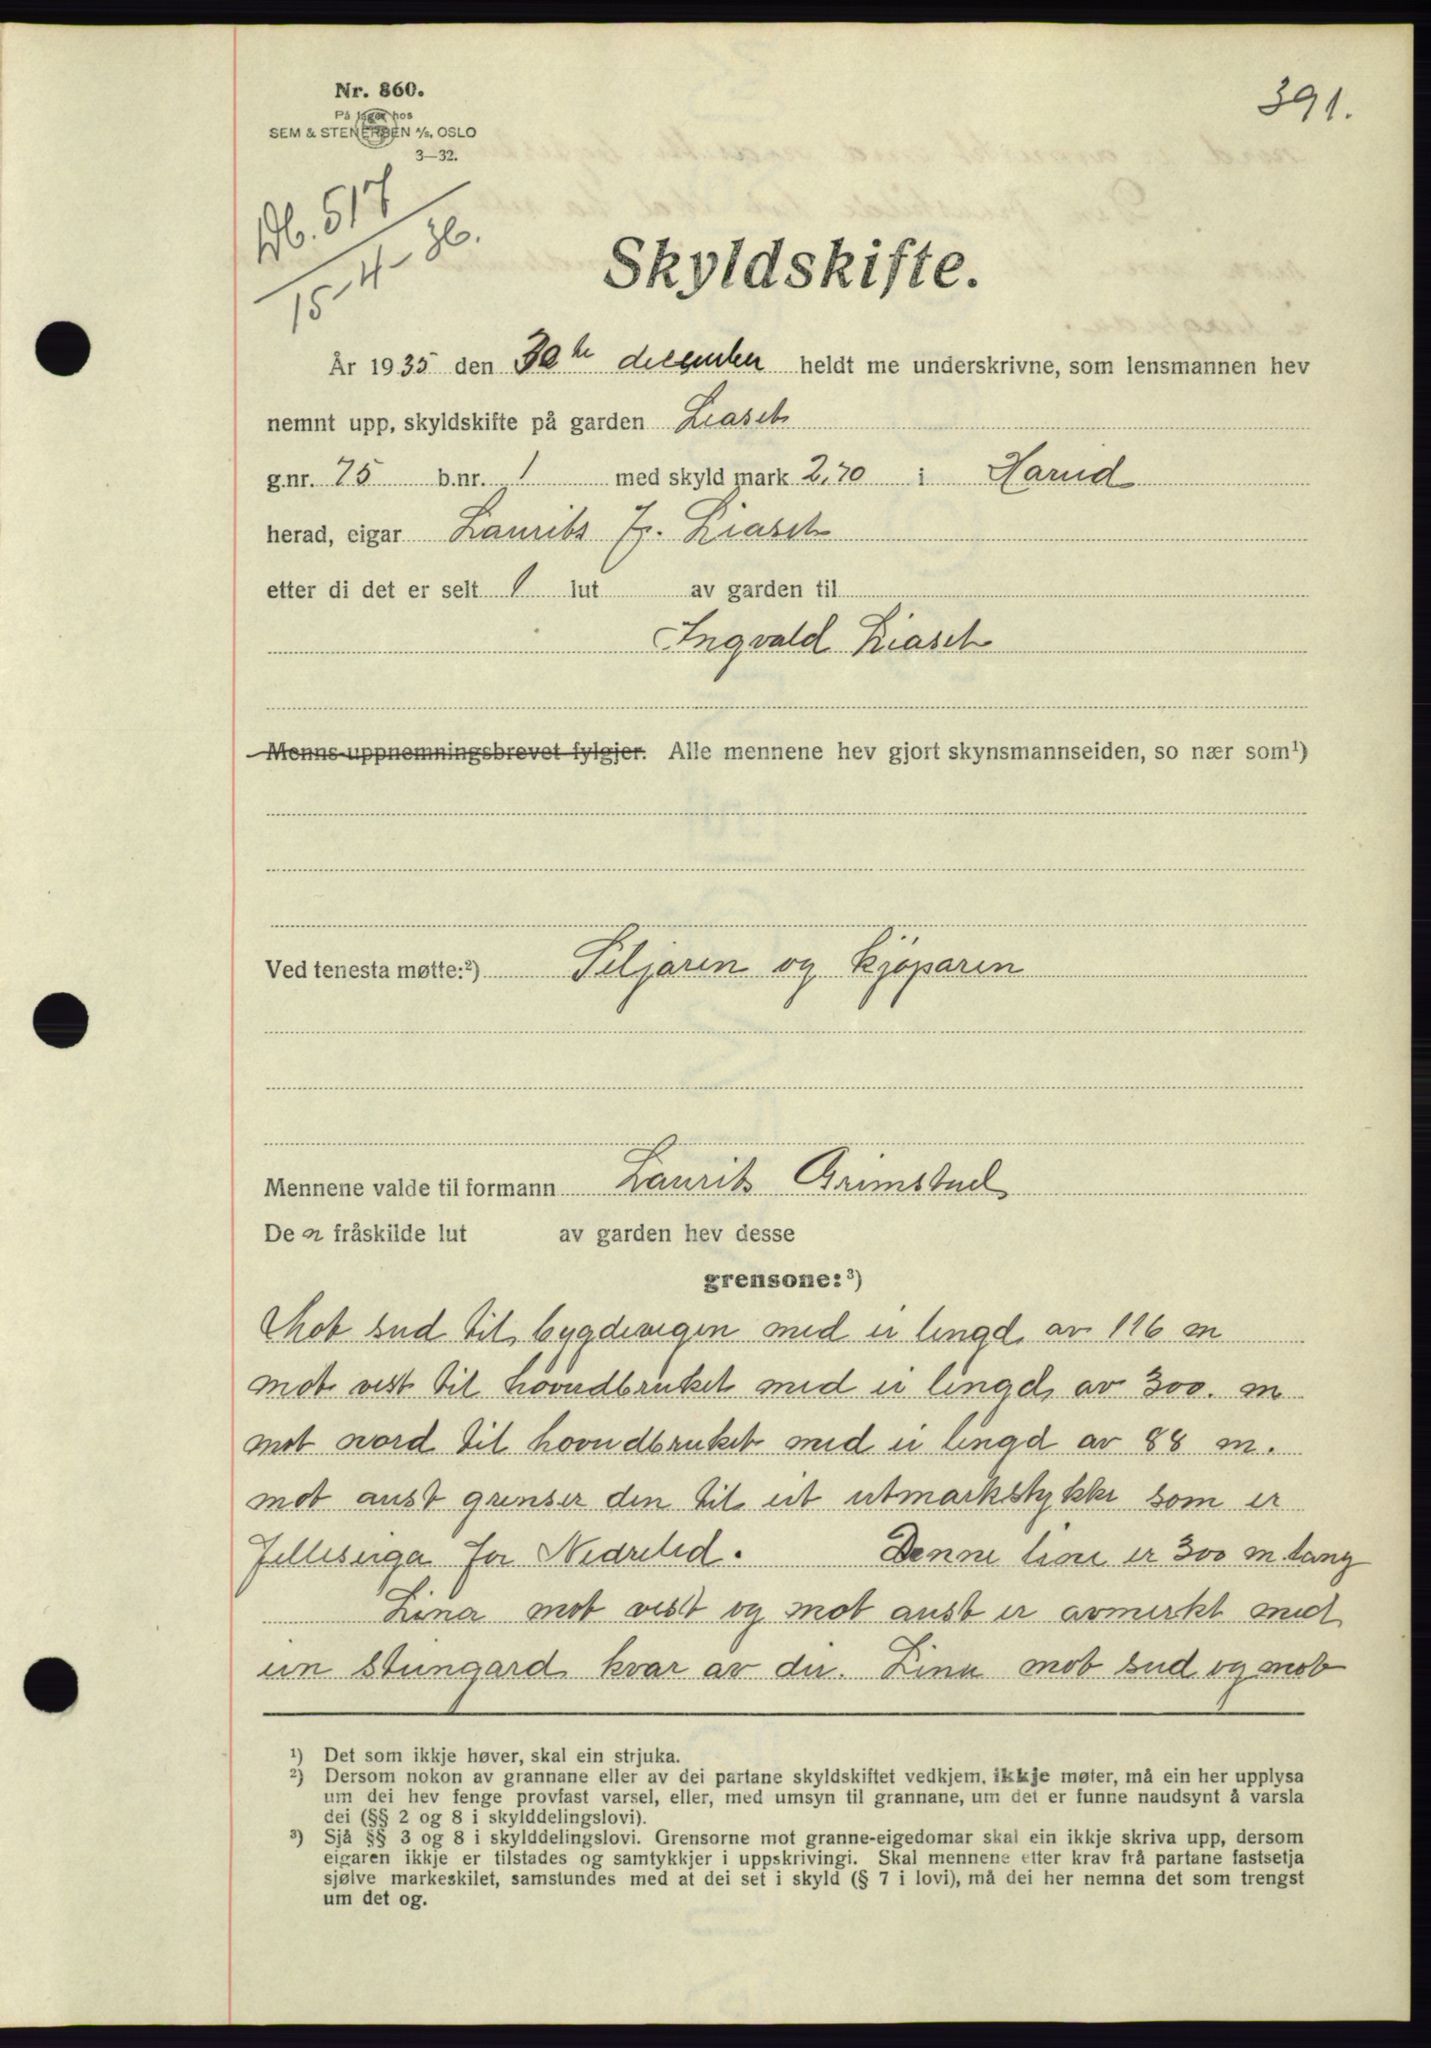 391.
Nr. 860.
På lager hos
SEM & STENERSEN A/S, OSLO
3—32.
Db. 517
15-4-36.
Skyldskifte.
År 1935 den 30te december heldt me underskrivne, som lensmannen hev
nemnt upp, skyldskifte på garden Liaset
g.nr. 75 b.nr. 1 med skyld mark 2,70 i Hareid
herad, eigar Laurits J. Liaset
etter di det er selt 1 lut av garden til
Ingvald Liaset
Menns-uppnemningsbrevet fylgjer. Alle mennene hev gjort skynsmannseiden, so nær som¹)
Ved tenesta møtte:²) Seljaren og kjøparen
Mennene valde til formann Laurits Grimstad
Den fråskilde lut av garden hev desse
grensone:³)
Mot sud til bygdevegen med ei lengd av 116 m
mot vest til hovudbruket med ei lengd av 300. m
mot nord til hovudbruket med ei lengd av 88 m.
mot aust grenser den til eit utmarkstykke som er
felleseiga for Nedrelid. Denne line er 300 m lang
Lina mot vest og mot aust er avmerkt med
ein steingard kvar av dei. Lina mot sud og mot
¹) Det som ikkje høver, skal ein strjuka.
²) Dersom nokon av grannane eller av dei partane skyldskiftet vedkjem, ikkje møter, må ein her upplysa
um dei hev fenge provfast varsel, eller, med umsyn til grannane, um det er funne naudsynt å varsla
dei (§§ 2 og 8 i skylddelingslovi).
³) Sjå §§ 3 og 8 i skylddelingslovi. Grensorne mot granne-eigedomar skal ein ikkje skriva upp, dersom
eigaren ikkje er tilstades og samtykkjer i uppskrivingi. Skal mennene etter krav frå partane fastsetja
sjølve markeskilet, samstundes med at dei set i skyld (§ 7 i lovi), må dei her nemna det som trengst
um det og.